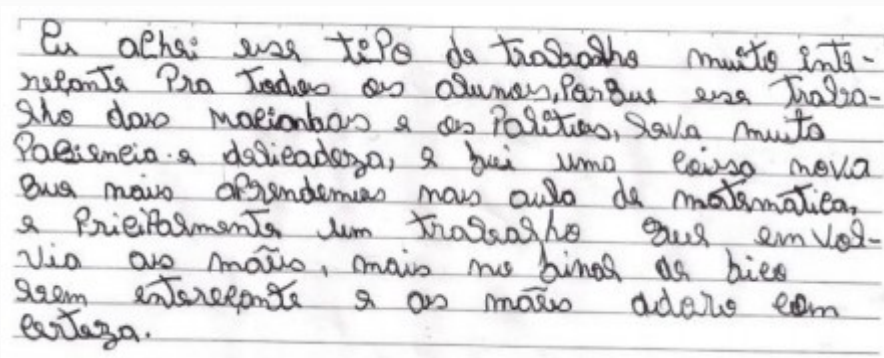 Eu alhei esse tipo de trabalho muito inte-
reçante Pra Todos os alunos, Porque esse Traba-
lho das macianhas e os Palitios, leva muita
Paciencia e delicadeza, e fui uma coisa nova
que mais aprendemos mais aula de matematica,
e Pricipalmente um trabalho que envol-
via as mãus, mais no final as fico
bem entereçante e as mãus adoro com
certeza.